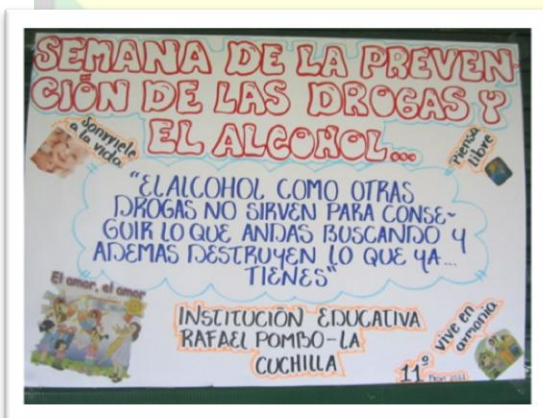 SEMANA DE LA PREVEN-
CIÓN DE LAS DROGAS Y
EL ALCOHOL...
Sonríele
a la vida
Piensa
libre
"EL ALCOHOL COMO OTRAS
DROGAS NO SIRVEN PARA CONSE-
GUIR LO QUE ANDAS BUSCANDO Y
ADEMAS DESTRUYEN LO QUE YA...
TIENES"
El amor, el amor
INSTITUCIÓN EDUCATIVA
RAFAEL POMBO-LA
CUCHILLA
vive en
armonia
11º